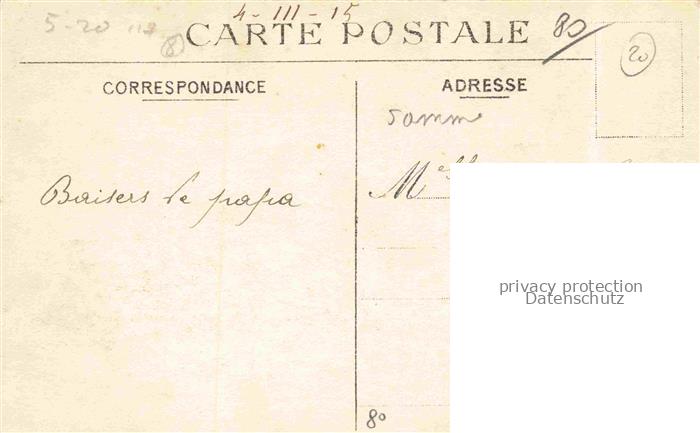 4-III-15
5-20
8
CARTE POSTALE
80
20
CORRESPONDANCE
ADRESSE
Somme
Melle
Baisers de papa
privacy protection
Datenschutz
80